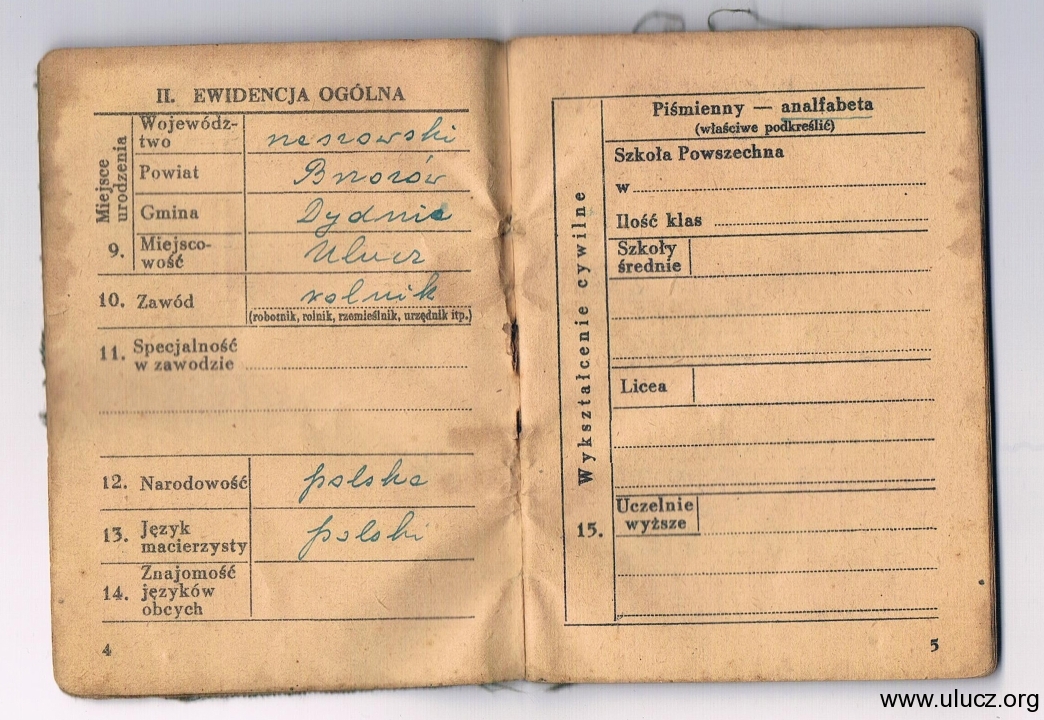 II. EWIDENCJA OGÓLNA
Miejsce urodzenia
Wojewódz-
two
Powiat
Brzozów
Gmina
Dydnia
9. Miejsco-
wość
Ulucz
10. Zawód
rolnik
(robotnik, rolnik, rzemieślnik, urzędnik itp.)
11. Specjalność
w zawodzie
12. Narodowość
polska
13. Język
macierzysty
polski
14. Znajomość
języków
obcych
4
Piśmienny — analfabeta
(właściwe podkreślić)
Szkoła Powszechna
w
Ilość klas
Szkoły
średnie
Licea
Uczelnie
wyższe
15. Wykształcenie cywilne
5
www.ulucz.org